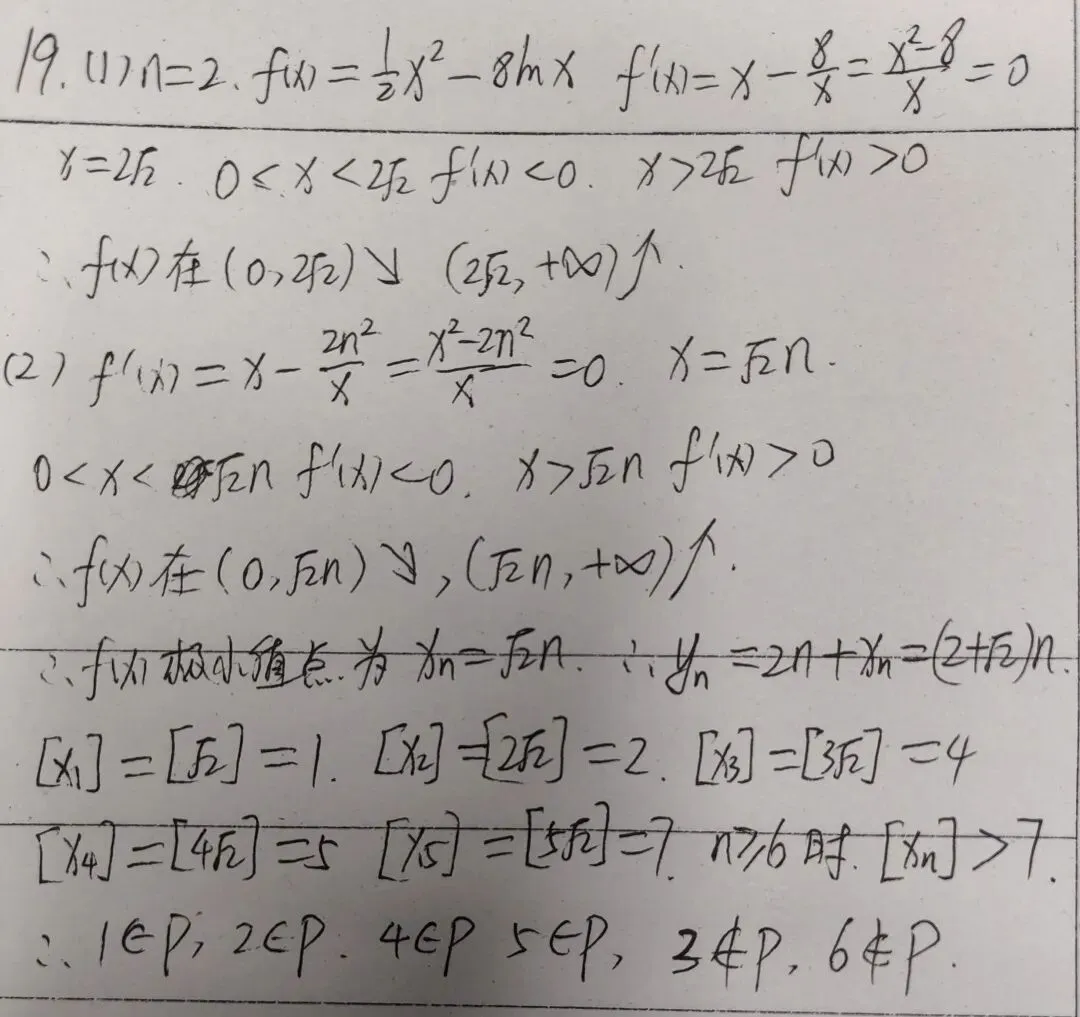 19. (1) n=2. f(x)=½x²-8lnx f'(x)=x-8/x=(x²-8)/x=0
x=2√2. 0<x<2√2 f'(x)<0. x>2√2 f'(x)>0
∴f(x)在(0,2√2)↘ (2√2,+∞)↗.
(2) f'(x)=x-2n²/x=(x²-2n²)/x=0. x=√2n.
0<x<√2n f'(x)<0. x>√2n f'(x)>0
∴f(x)在(0,√2n)↘,(√2n,+∞)↗.
∴f(x)极小值点为xₙ=√2n. ∴yₙ=2n+xₙ=(2+√2)n.
[x₁]=[√2]=1. [x₂]=[2√2]=2. [x₃]=[3√2]=4
[x₄]=[4√2]=5 [x₅]=[5√2]=7. n≥6时. [xₙ]>7.
∴1∈P, 2∈P. 4∈P 5∈P, 3∉P, 6∉P.